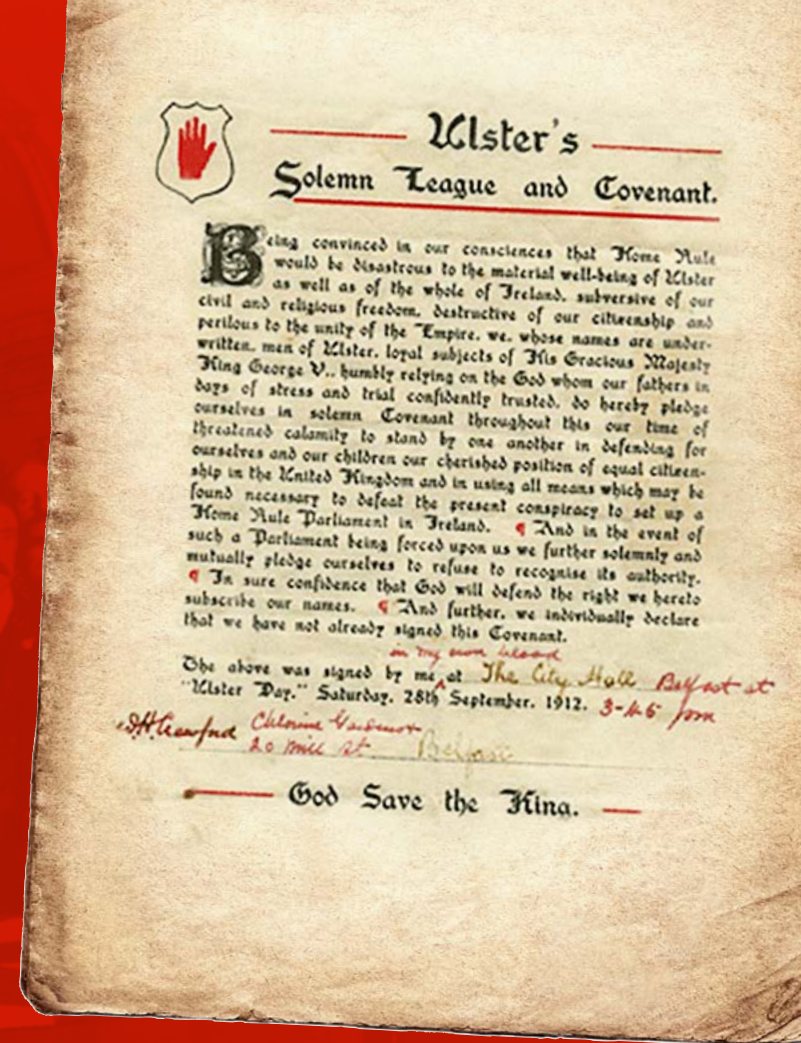 Ulster's
Solemn League and Covenant.
Being convinced in our consciences that Home Rule
would be disastrous to the material well-being of Ulster
as well as of the whole of Ireland, subversive of our
civil and religious freedom, destructive of our citizenship and
perilous to the unity of the Empire, we, whose names are under-
written, men of Ulster, loyal subjects of His Gracious Majesty
King George V., humbly relying on the God whom our fathers in
days of stress and trial confidently trusted, do hereby pledge
ourselves in solemn Covenant throughout this our time of
threatened calamity to stand by one another in defending for
ourselves and our children our cherished position of equal citizen-
ship in the United Kingdom and in using all means which may be
found necessary to defeat the present conspiracy to set up a
Home Rule Parliament in Ireland. ¶ And in the event of
such a Parliament being forced upon us we further solemnly and
mutually pledge ourselves to refuse to recognise its authority.
¶ In sure confidence that God will defend the right we hereto
subscribe our names. ¶ And further, we individually declare
that we have not already signed this Covenant.
in my own blood
The above was signed by me at The City Hall Belfast at
"Ulster Day," Saturday, 28th September, 1912. 3-45 pm
Crawford
20 Mill St Belfast
God Save the King.